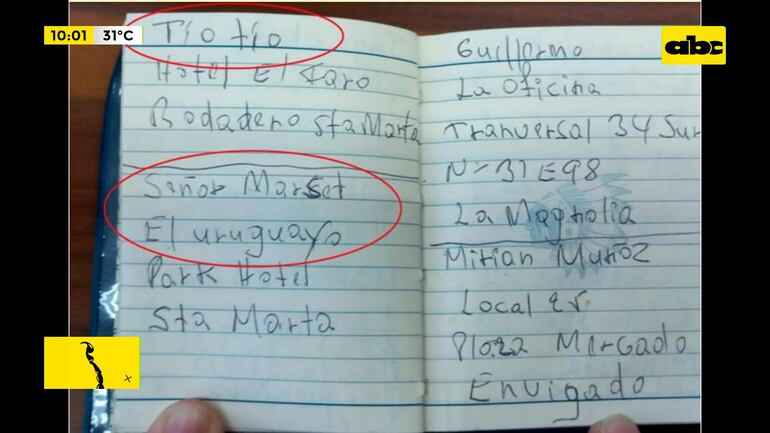 10:01 31°C
abc
Tío tío
Hotel El Faro
Rodadero Sta Marta
Señor Marset
El uruguayo
Park Hotel
Sta Marta
Guillermo
La Oficina
Tranversal 34 Sur
N- 31 E 98
La Magnolia
Mirian Muñoz
Local
Plaza Mercado
Envigado